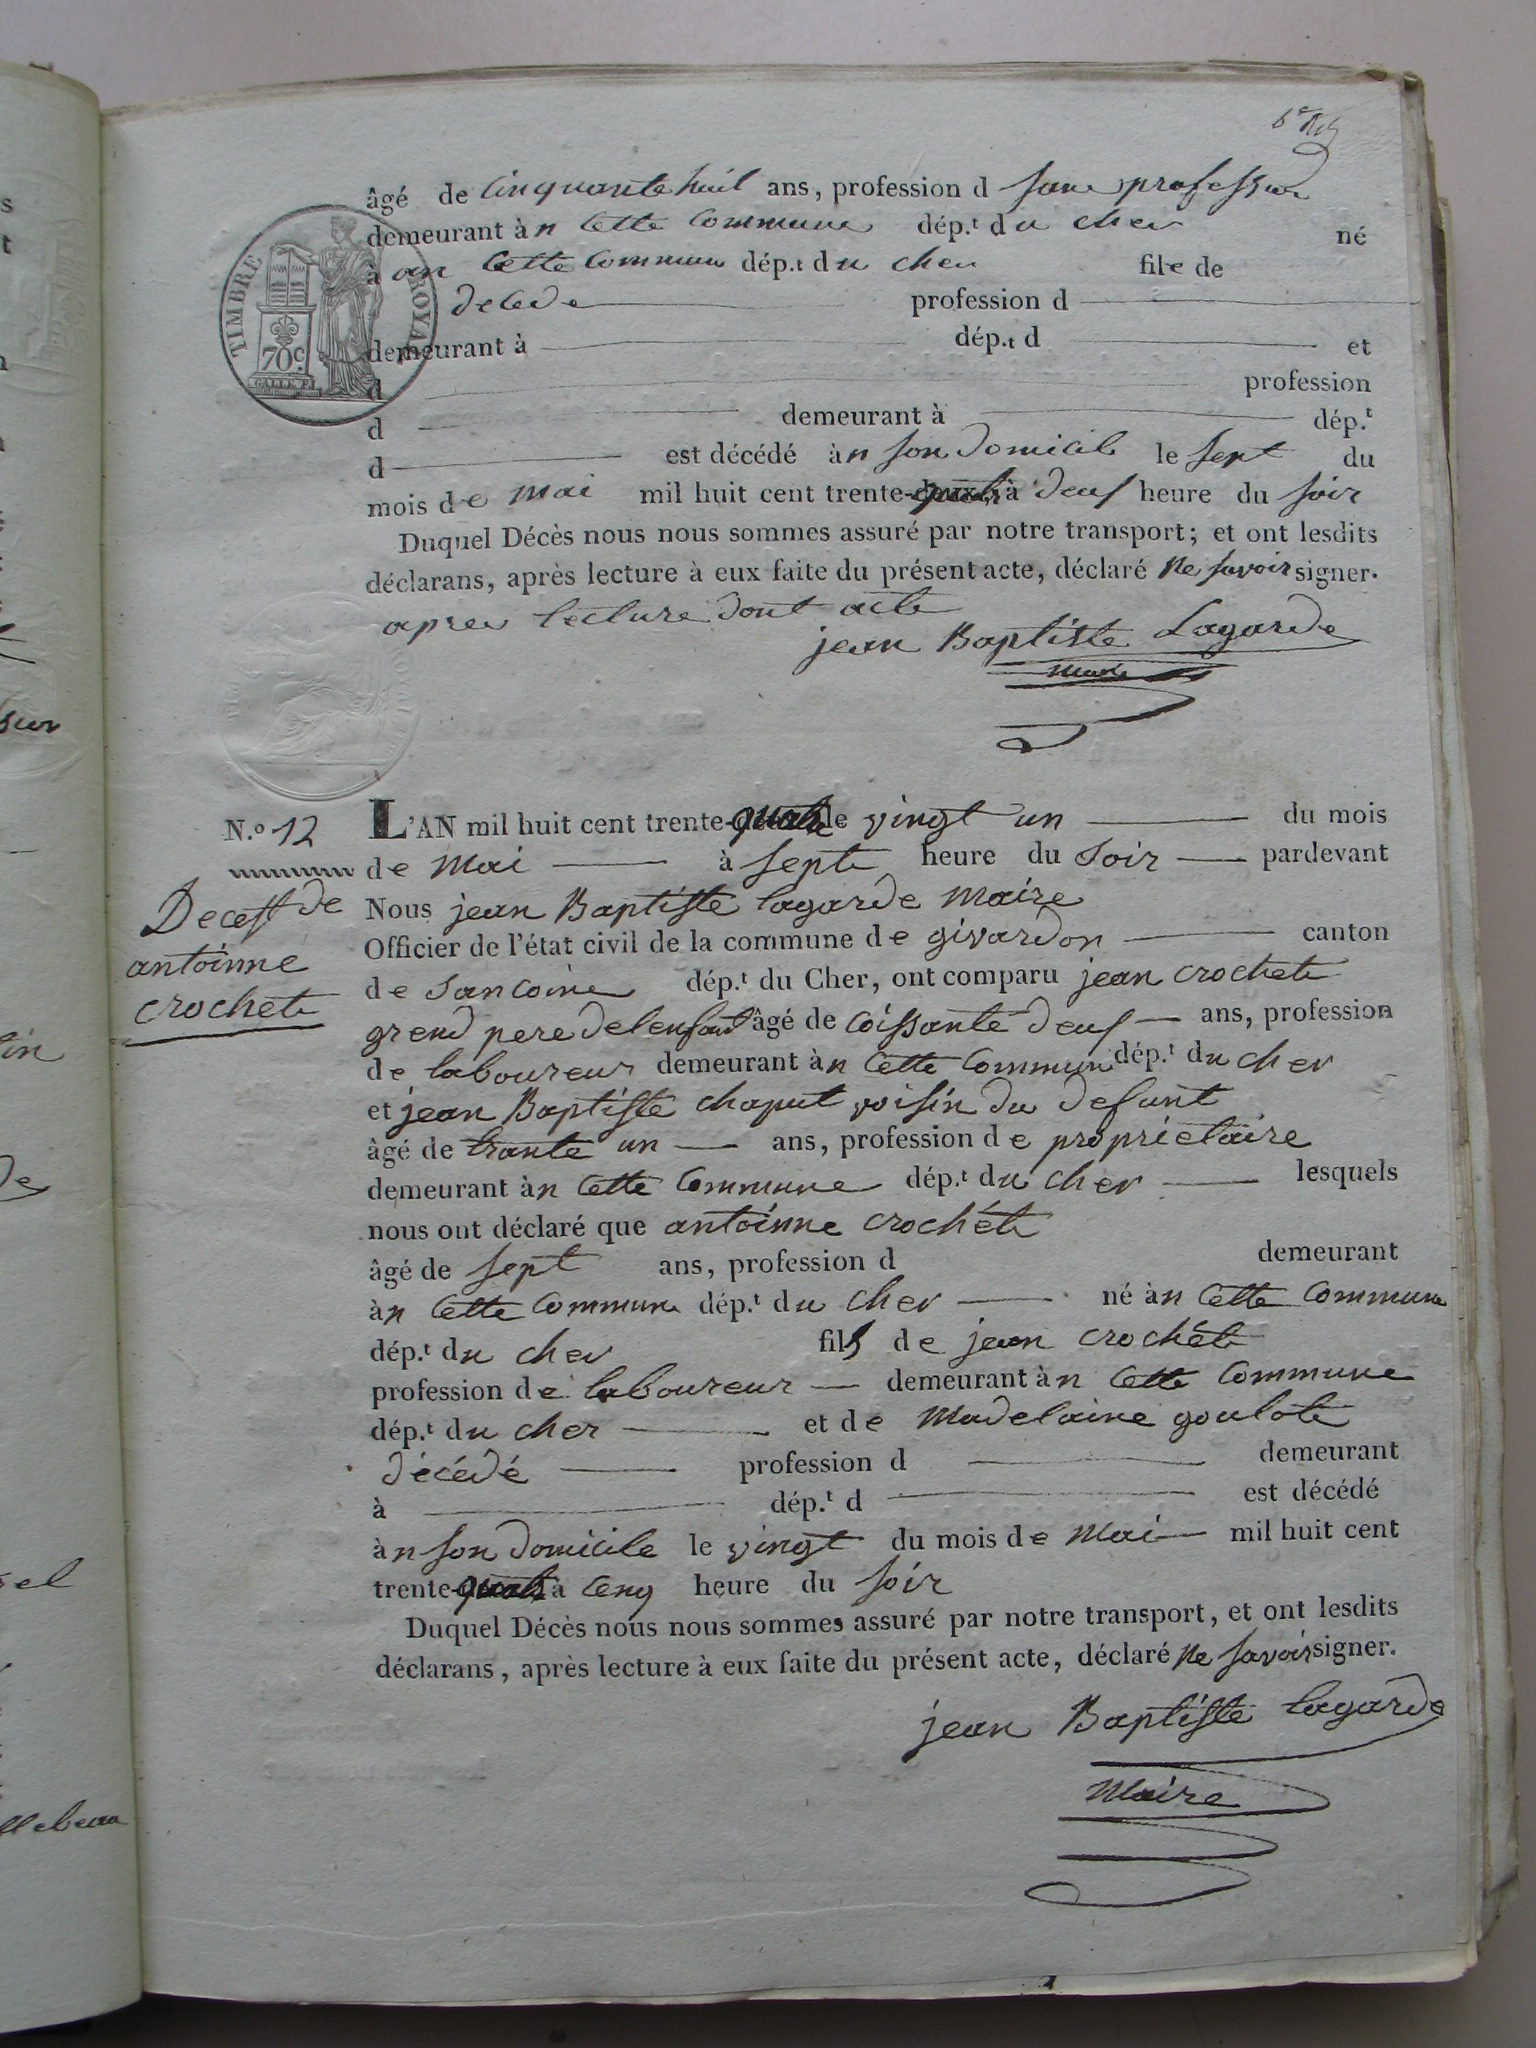 âgé de cinquante huit ans, profession d sans profession
demeurant àn cette commune dép.t du cher né
à an cette commune dép.t du cher file de
decede profession d
demeurant à dép.t d et
d profession
d demeurant à dép.t
d est décédé àn son domicile le sept du
mois de mai mil huit cent trente-quatre à deuf heure du soir
Duquel Décès nous nous sommes assuré par notre transport; et ont lesdits
déclarans, après lecture à eux faite du présent acte, déclaré ne savoir signer.
apres lecture dont acte
jean Baptiste Lagarde
maire
TIMBRE ROYAL
70c.
N.o 12
Decest de
antoinne
crochete
L'AN mil huit cent trente-quatre le vingt un du mois
de mai à septe heure du soir pardevant
Nous jean Baptiste lagarde maire
Officier de l'état civil de la commune de givardon canton
de sancoine dép.t du Cher, ont comparu jean crochete
grend pere delenfant âgé de coissante deuf ans, profession
de laboureur demeurant àn cette commune dép.t du cher
et jean Baptiste chaput voisin du defunt
âgé de trante un ans, profession de proprietaire
demeurant àn cette commune dép.t du cher lesquels
nous ont déclaré que antoinne crochéte
âgé de sept ans, profession d demeurant
àn cette commune dép.t du cher né àn cette commune
dép.t du cher fils de jean crochéte
profession de laboureur demeurant àn cette commune
dép.t du cher et de madelaine goulote
décédé profession d demeurant
à dép.t d est décédé
àn son domicile le vingt du mois de mai mil huit cent
trente-quatre à cenq heure du soir
Duquel Décès nous nous sommes assuré par notre transport, et ont lesdits
déclarans, après lecture à eux faite du présent acte, déclaré ne savoir signer.
jean Baptiste lagarde
maire